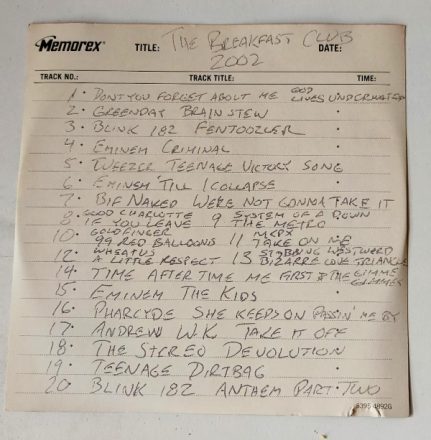 Memorex®
TITLE: THE BREAKFAST CLUB DATE:
2002
TRACK NO.: TRACK TITLE: TIME:
1. DON'T YOU FORGET ABOUT ME GOD LIVES UNDERWATER
2. GREENDAY BRAIN STEW
3. BLINK 182 FENTOOZLER
4. EMINEM CRIMINAL
5. WEEZER TEENAGE VICTORY SONG
6. EMINEM 'TILL I COLLAPSE
7. BIF NAKED WERE NOT GONNA TAKE IT
8. GOOD CHARLOTTE IF YOU LEAVE 9 SYSTEM OF A DOWN THE METRO
10. GOLDFINGER 99 RED BALLOONS 11 MXPX TAKE ON ME
12. WHEATUS A LITTLE RESPECT 13 STABBING WESTWARD BIZARRE LOVE TRIANGLE
14. TIME AFTER TIME ME FIRST & THE GIMME GIMMES
15. EMINEM THE KIDS
16. PHARCYDE SHE KEEPS ON PASSIN' ME BY
17. ANDREW W.K. TAKE IT OFF
18. THE STEREO DEVOLUTION
19. TEENAGE DIRTBAG
20. BLINK 182 ANTHEM PART TWO